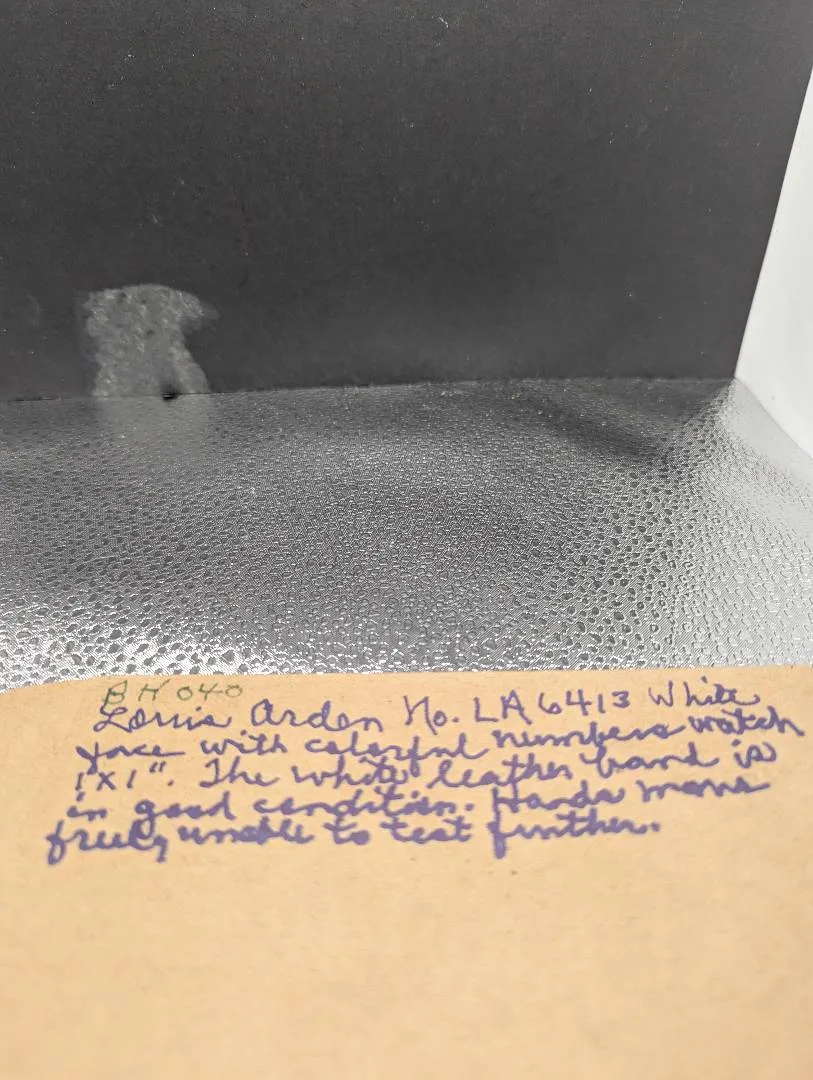 BH 040
Louis Arden No. LA 6413 White
face with colorful numbers watch
1"x1". The white leather band is
in good condition. Hands move
freely unable to test further.